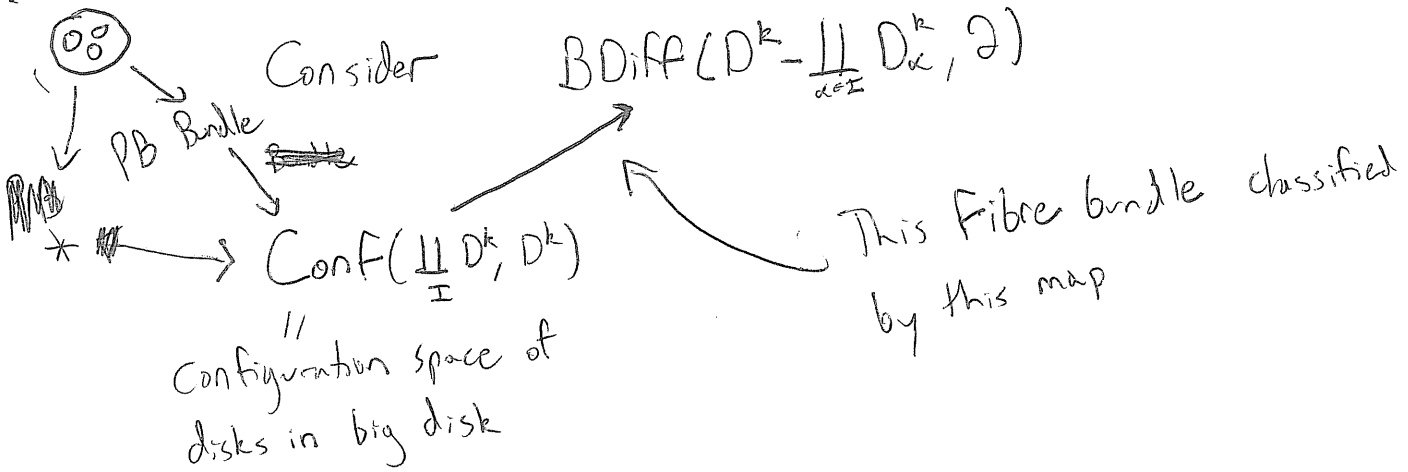 Consider BDiff(D^k - ∐_{α∈I} D^k_α, ∂)
PB Bundle
* → Conf(∐_I D^k, D^k)
This Fibre bundle classified
by this map
"
Configuration space of
disks in big disk